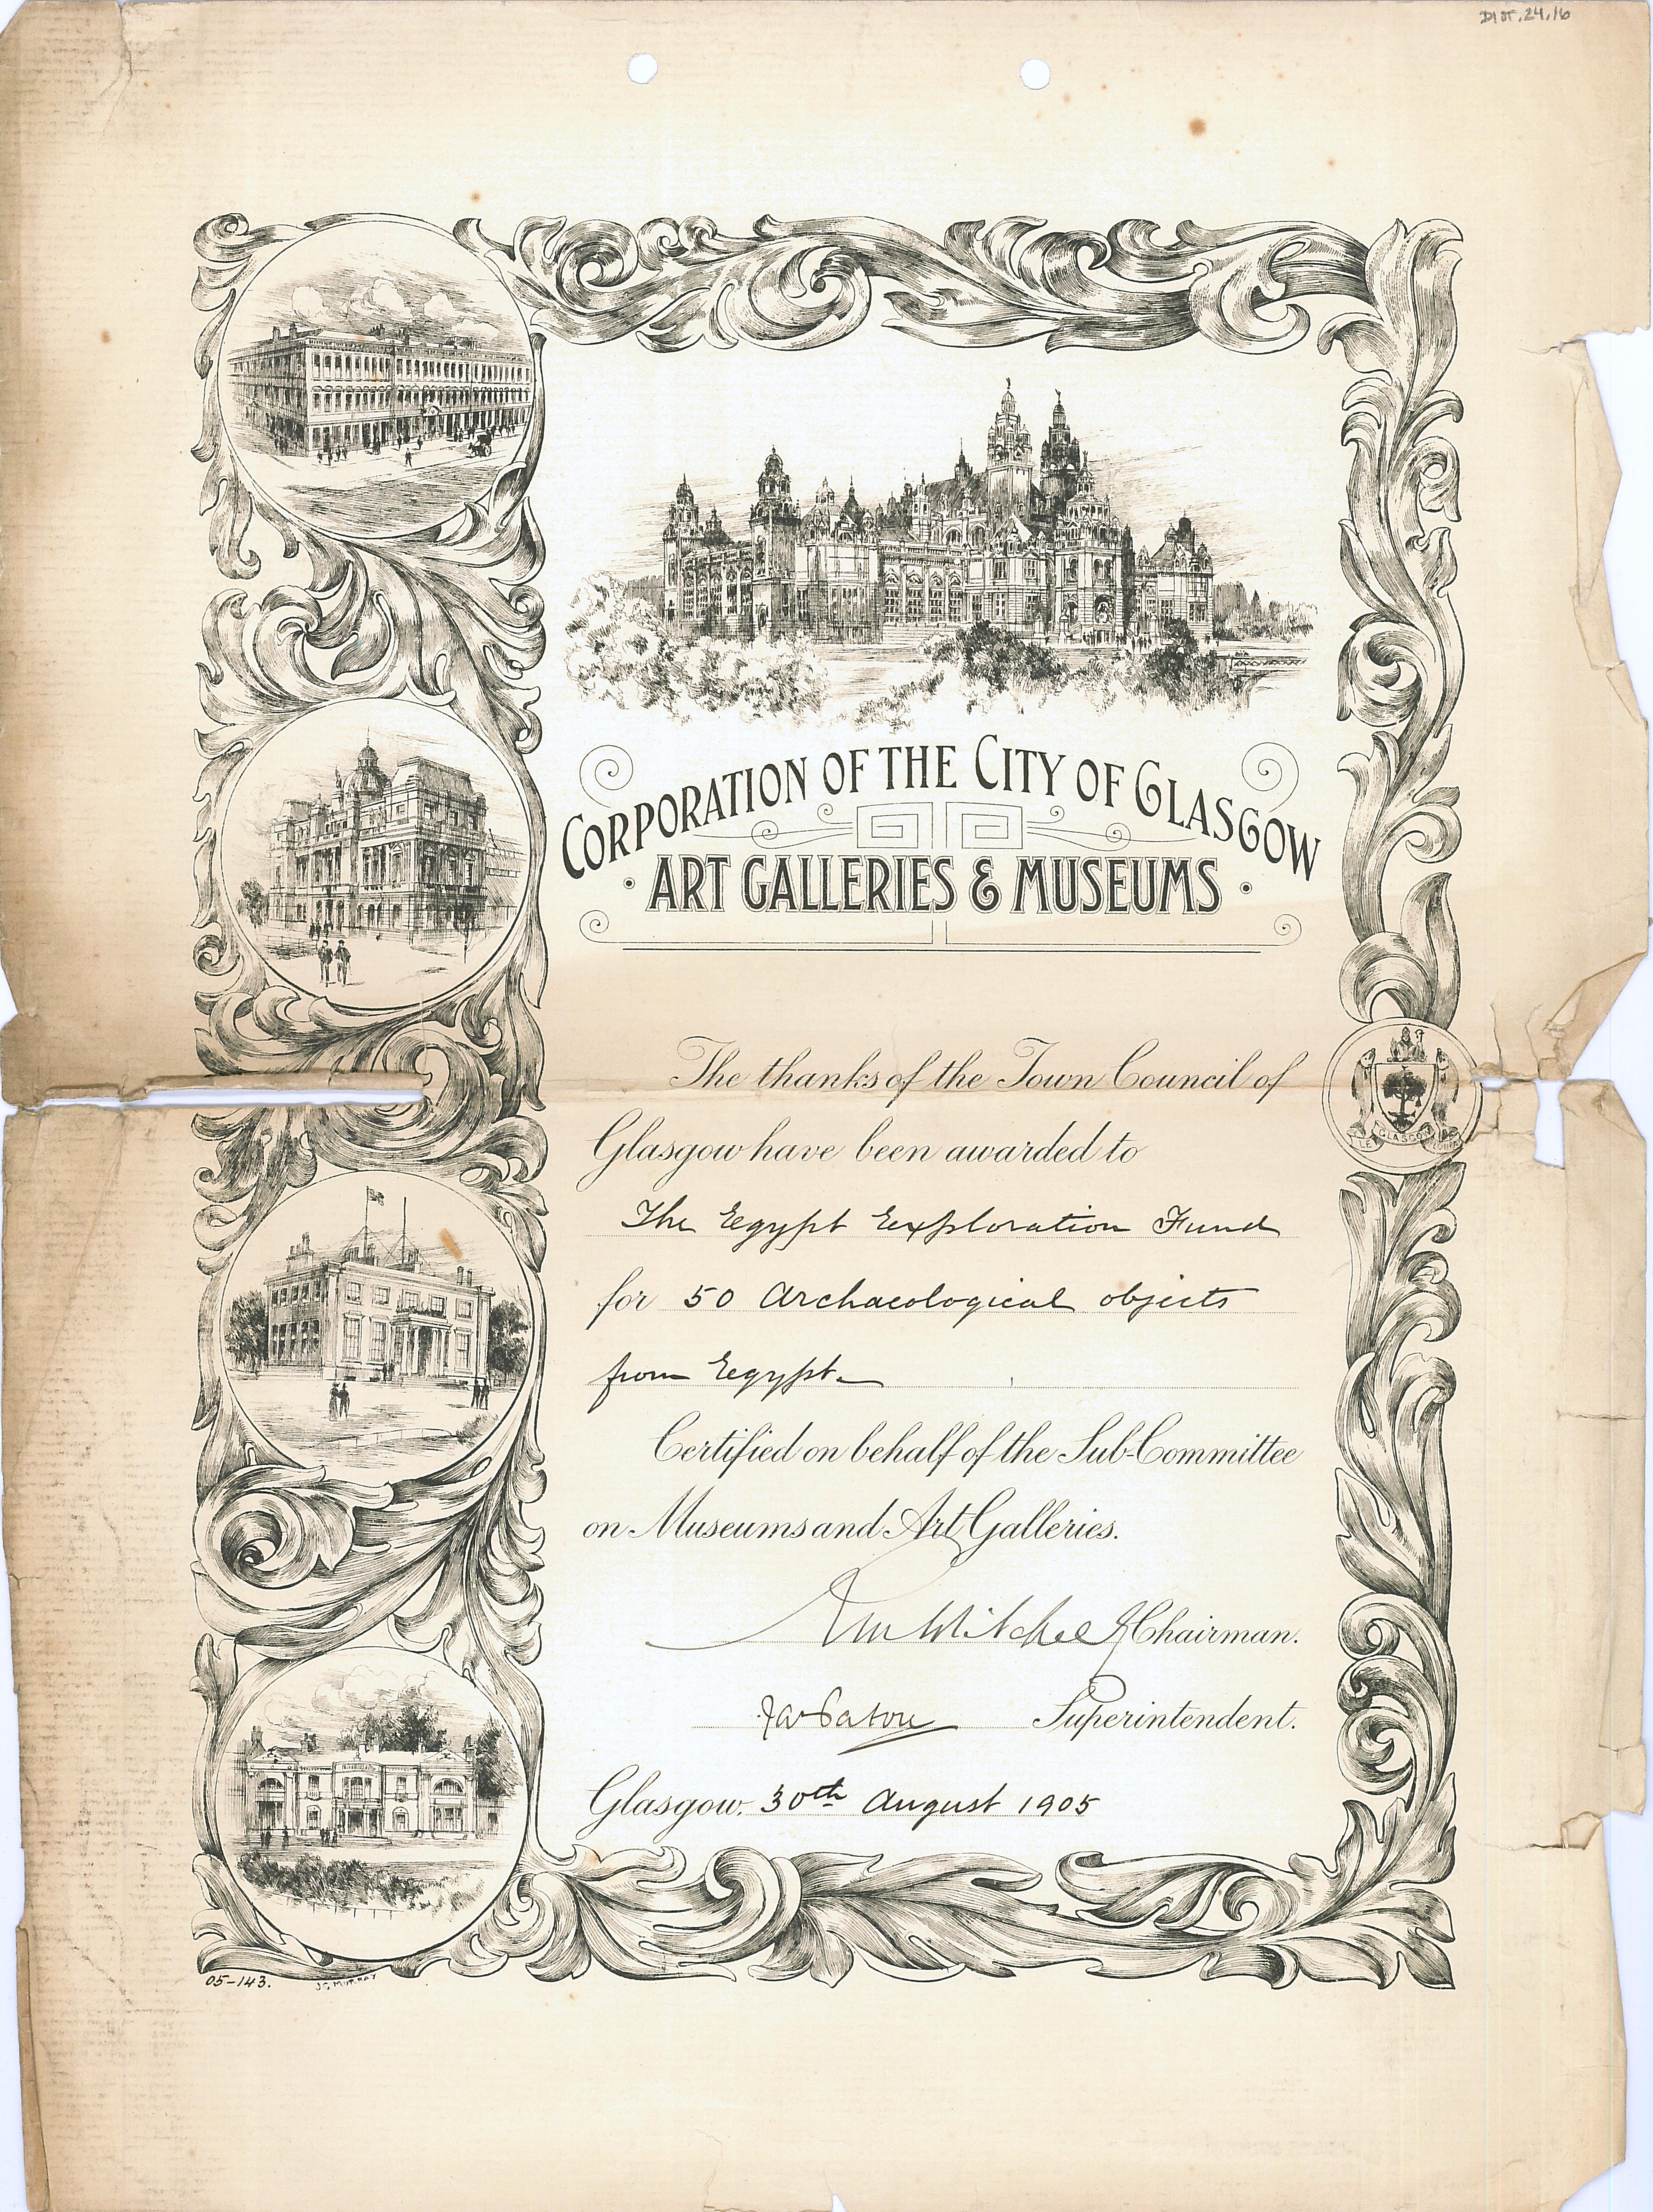 DIST.24.16
CORPORATION OF THE CITY OF GLASGOW
· ART GALLERIES & MUSEUMS ·
The thanks of the Town Council of
Glasgow have been awarded to
The Egypt Exploration Fund
for 50 Archaeological objects
from Egypt
Certified on behalf of the Sub-Committee
on Museums and Art Galleries.
Chairman.
Superintendent.
Glasgow. 30th August 1905
GLASGOW
05-143. J.G. MURRAY